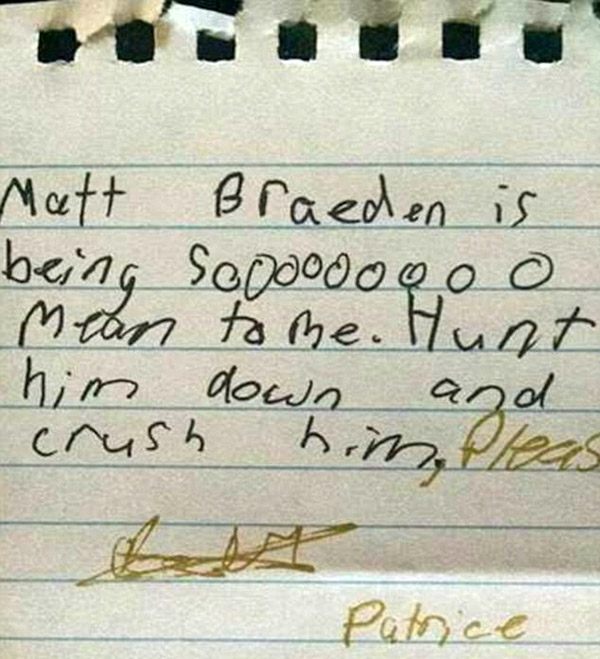 Matt Braeden is
being Sooooooooo
Mean to me. Hunt
him down and
crush him, Pleas
Patrice